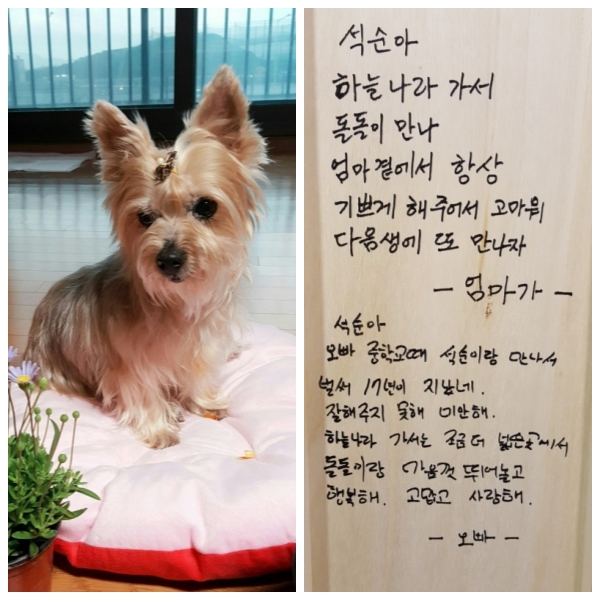 석순아
하늘나라 가서
돌돌이 만나
엄마곁에서 항상
기쁘게 해주어서 고마워
다음생에 또 만나자
- 엄마가 -
석순아
오빠 중학교때 석순이랑 만나서
벌써 17년이 지났네.
잘해주지 못해 미안해.
하늘나라 가서는 조금 더 넓은곳에서
돌돌이랑 마음껏 뛰어놀고
행복해. 고맙고 사랑해.
- 오빠 -